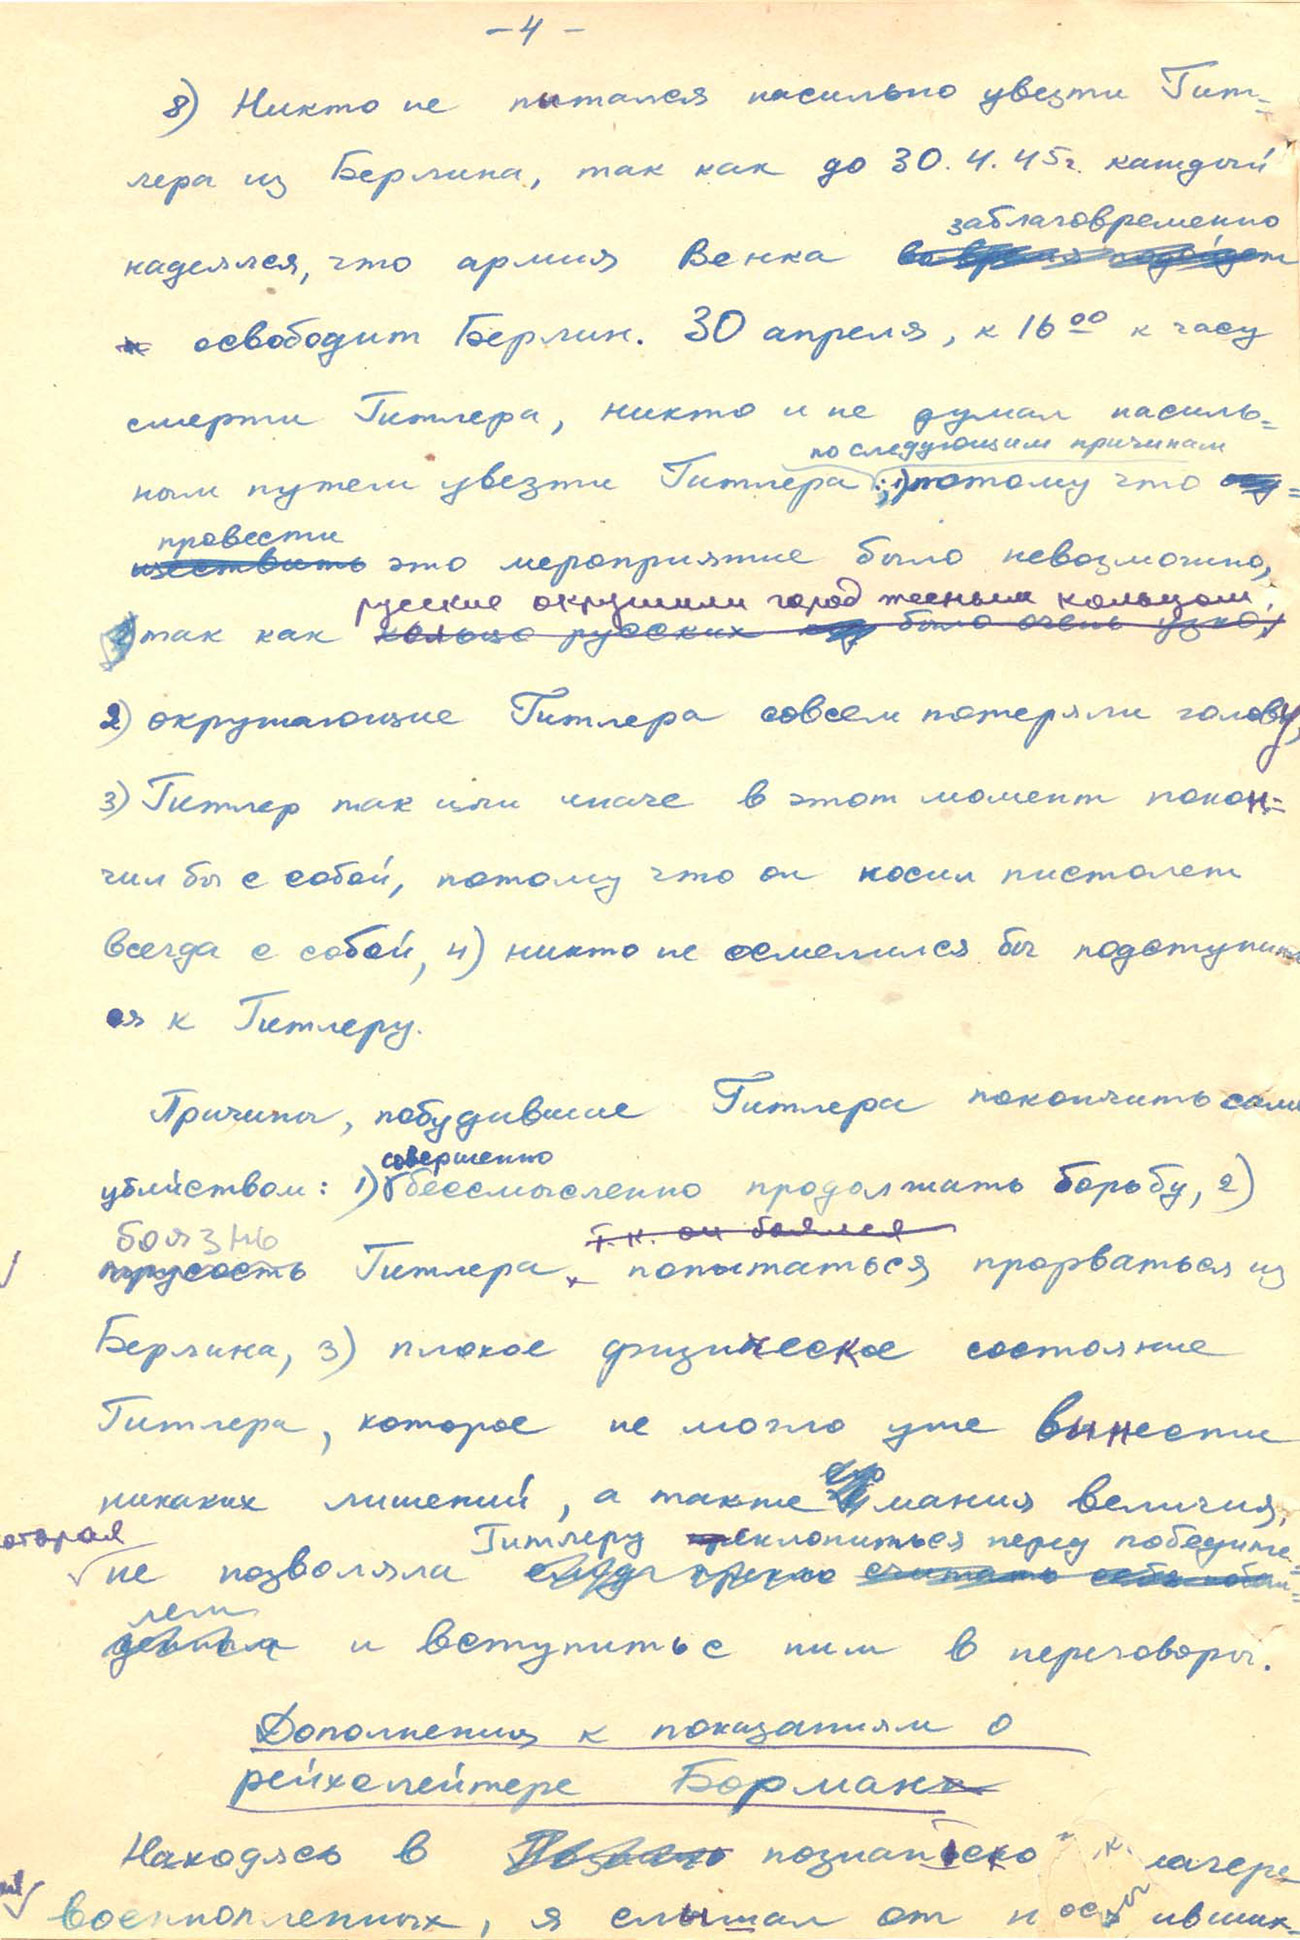 - 4 -
8) Никто не пытался насильно увезти Гит=
лера из Берлина, так как до 30.4.45г. каждый
заблаговременно
надеялся, что армия Венка во время подойдет
и освободит Берлин. 30 апреля, к 16 00 к часу
смерти Гитлера, никто и не думал насиль=
по следующим причинам
ным путем увезти Гитлера: 1) потому что
провести
это мероприятие было невозможно,
русские окружили город тесным кольцом;
так как кольцо русских было очень узко,
2) окружающие Гитлера совсем потеряли голову,
3) Гитлер так или иначе в этот момент покон=
чил бы с собой, потому что он носил пистолет
всегда с собой, 4) никто не осмелился бы подступить
ся к Гитлеру.
Причины, побудившие Гитлера покончить само
совершенно
убийством: 1) бессмысленно продолжать борьбу, 2)
боязнь т.к. он боялся
трусость Гитлера попытаться прорваться из
Берлина, 3) плохое физическое состояние
Гитлера, которое не могло уже вынести
его
никаких лишений, а также мания величия,
которая Гитлеру преклониться перед победите=
не позволяла считать себя побеж=
лем
денным и вступить с ним в переговоры.
Дополнения к показаниям о
рейхслейтере Борман
Находясь в познанско лагере
военнопленных, я слышал от